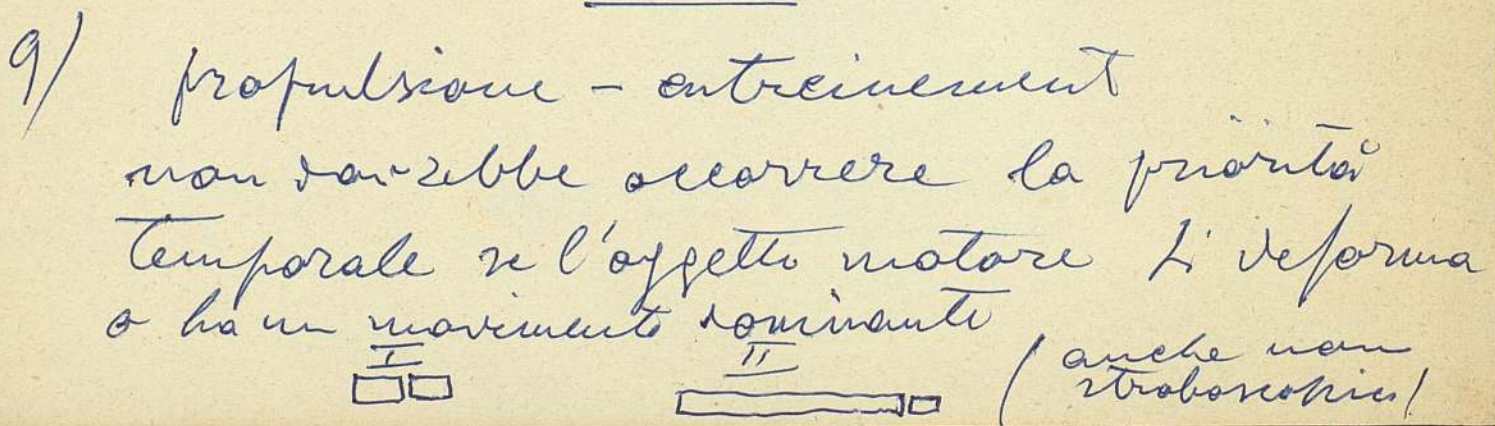 9/ propulsione - entreinement
non dovrebbe occorrere la priorità
temporale se l'oggetto motore si deforma
o ha un movimento dominante
I II (anche non
stroboscopico)